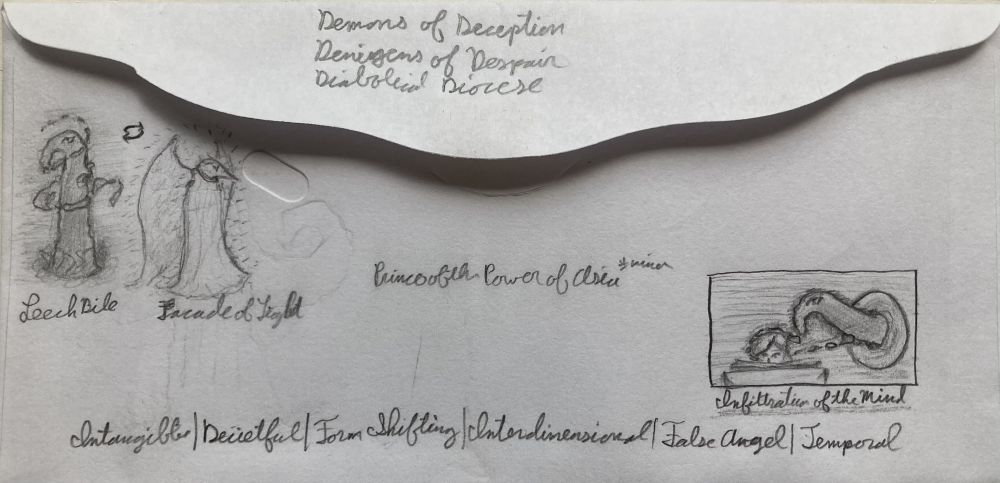 Demons of Deception
Denizens of Despair
Diabolical Diocese
Leech Bile
Facade of Light
Prince of the Power of Asia *minor
Infiltration of the Mind
Intangible | Deceitful | Form Shifting | Interdimensional | False Angel | Temporal